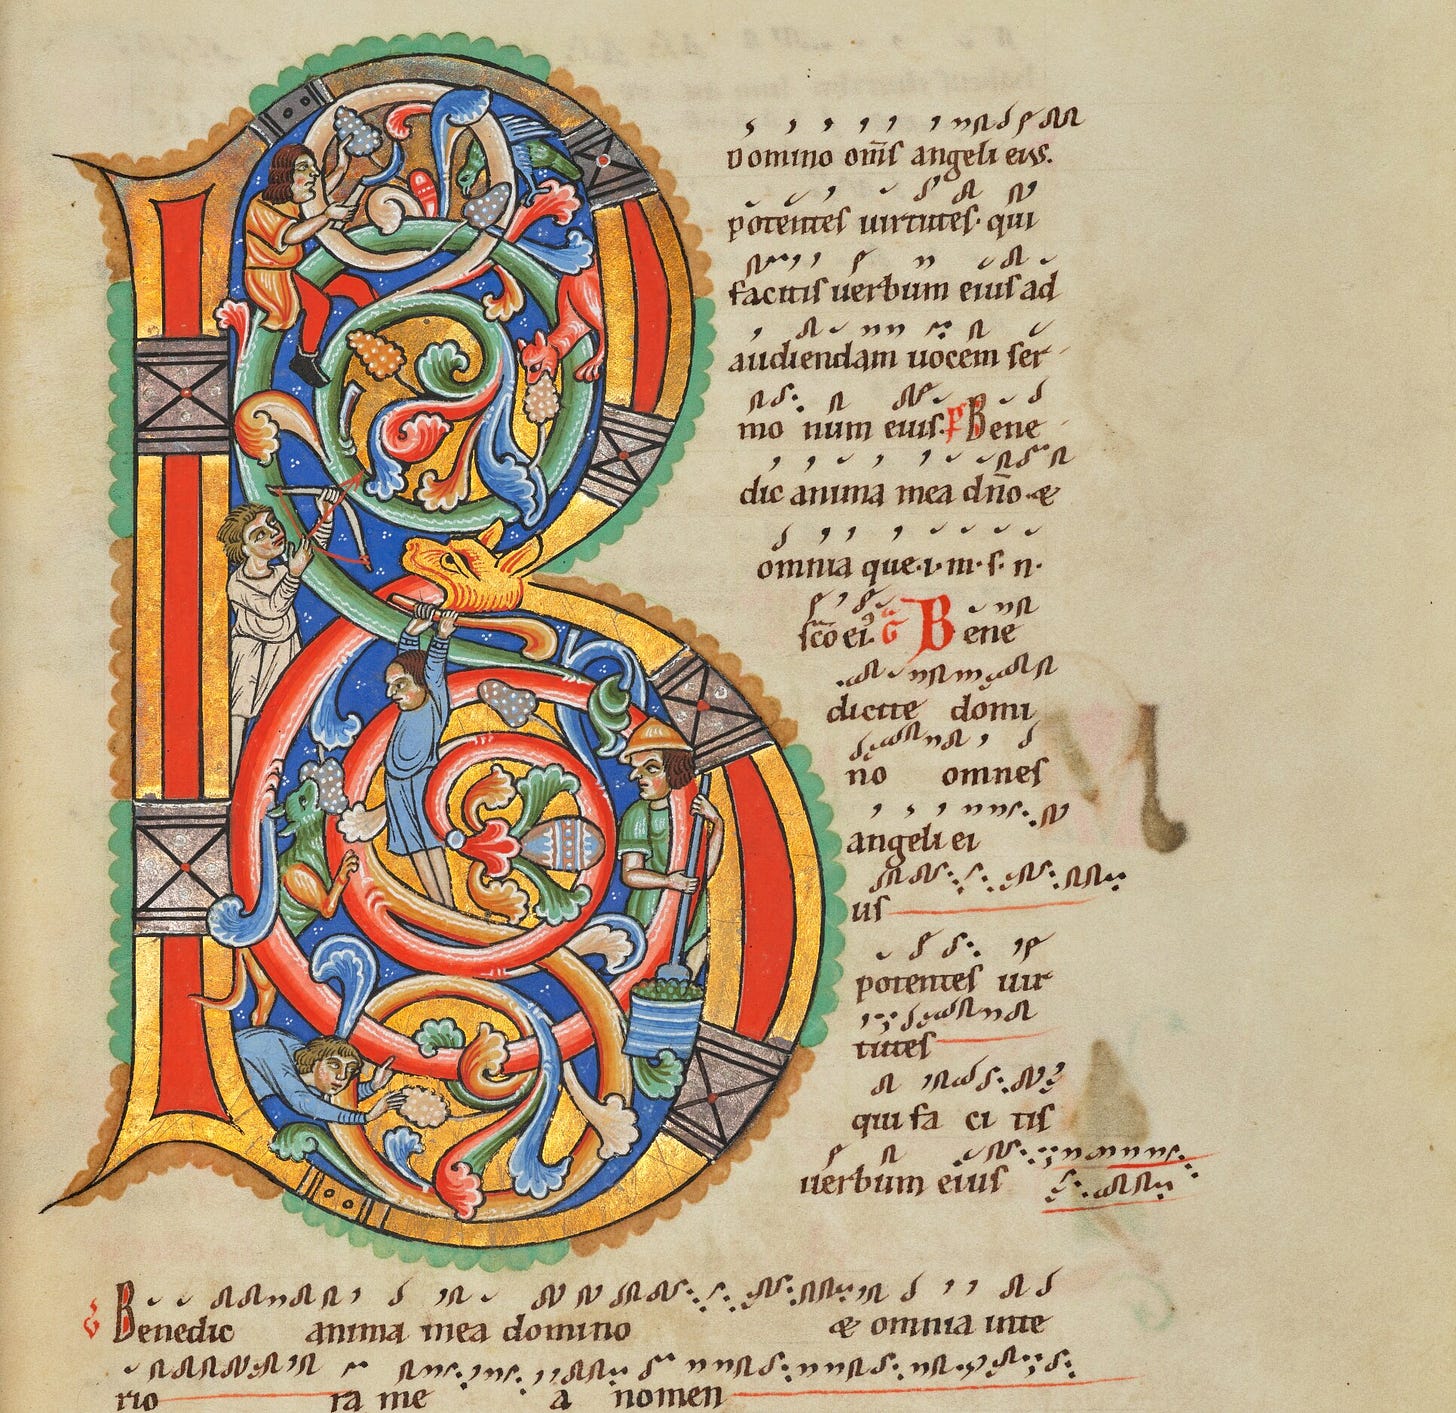 B
Domino om̄s angeli eius.
potentes uirtutes· qui
facitis uerbum eius ad
audiendam uocem ser
mo num eius. P Bene
dic anima mea dn̄o· &
omnia que· i· m· s· n·
sc̄o ei' G Bene
dicite domi
no omnes
angeli ei
us
potentes uir
tutes
qui fa ci tis
uerbum eius
Benedic anima mea domino & omnia inte
rio ra me a nomen